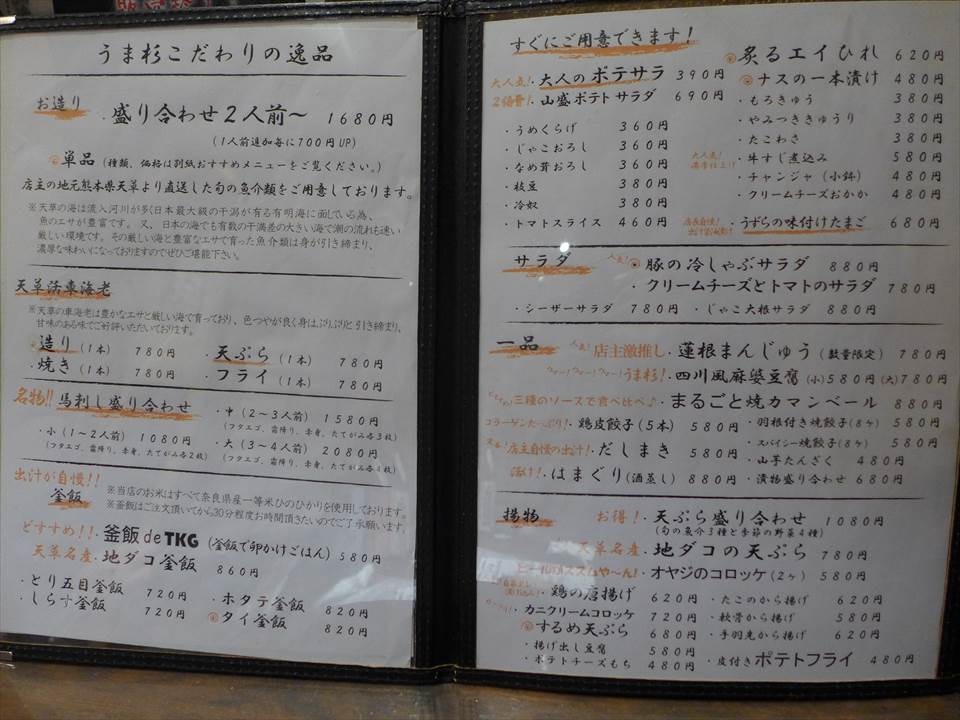 うま杉こだわりの逸品
お造り
・盛り合わせ2人前～ 1680円
(1人前追加毎に700円UP)
単品 (種類、価格は別紙おすすめメニューをご覧ください。)
店主の地元熊本県天草より直送した旬の魚介類をご用意しております。
※天草の海は流入河川が多く日本最大級の干潟が有る有明海に面している為、
魚のエサが豊富です。又、日本の海でも有数の干満差の大きい海で潮の流れも速い
厳しい環境です。その厳しい海と豊富なエサで育った魚介類は身が引き締まり、
濃厚な味わいになっておりますのでぜひご堪能下さい。
天草活車海老
※天草の車海老は豊かなエサと厳しい海で育っており、色つやが良く身はぷりぷりと引き締まり、
甘味のある味でご好評いただいております。
・造り (1本) 780円 ・天ぷら (1本) 780円
・焼き (1本) 780円 ・フライ (1本) 780円
名物!!馬刺し盛り合わせ
・中 (2～3人前) 1580円
(フタエゴ、霜降り、赤身、たてがみ各3枚)
・小 (1～2人前) 1080円
(フタエゴ、霜降り、赤身、たてがみ各2枚)
・大 (3～4人前) 2080円
(フタエゴ、霜降り、赤身、たてがみ各4枚)
出汁が自慢!!
釜飯
※当店のお米はすべて奈良県産一等米ひのひかりを使用しております。
※釜飯はご注文頂いてから30分程度お時間頂きたいのでご了承願います。
どすすめ!!・釜飯deTKG (釜飯で卵かけごはん) 580円
天草名産・地ダコ釜飯 860円
・とり五目釜飯 720円 ・ホタテ釜飯 820円
・しらす釜飯 720円 タイ釜飯 820円
すぐにご用意できます!
大人気!・大人のポテサラ 390円
2倍量!・山盛ポテトサラダ 690円
・うめくらげ 360円
・じゃこおろし 360円
・なめ茸おろし 360円
・枝豆 380円
・冷奴 380円
・トマトスライス 460円
炙るエイひれ 620円
ナスの一本漬け 480円
・もろきゅう 380円
・やみつききゅうり 380円
・たこわさ 380円
大人気!
・牛すじ煮込み 580円
・チャンジャ (小鉢) 480円
・クリームチーズおかか 480円
店長自慢!
・うずらの味付けたまご 680円
サラダ
人気!
豚の冷しゃぶサラダ 880円
・クリームチーズとトマトのサラダ 780円
・シーザーサラダ 780円 ・じゃこ大根サラダ 880円
一品
人気!店主激推し・蓮根まんじゅう (数量限定) 780円
うま杉!・四川風麻婆豆腐 (小)580円 (大)780円
三種のソースで食べ比べ♪・まるごと焼カマンベール 880円
コラーゲンたーっぷり!・鶏皮餃子 (5本) 580円 ・羽根付き焼餃子(8ヶ) 580円
・スパイシー焼餃子(8ヶ) 580円
店主自慢の出汁!・だしまき 580円 ・山芋たんざく 480円
活け!・はまぐり(酒蒸し) 880円 ・漬物盛り合わせ 680円
揚物
お得!・天ぷら盛り合わせ 1080円
(旬の魚介3種と季節の野菜4種)
天草名産・地ダコの天ぷら 780円
ビールがススムや～ん!・オヤジのコロッケ(2ヶ) 580円
・鶏の唐揚げ 620円 ・たこのから揚げ 620円
・カニクリームコロッケ 720円 ・軟骨から揚げ 580円
するめ天ぷら 680円 ・手羽先から揚げ 620円
・揚げ出し豆腐 580円
・ポテトチーズもち 480円 ・皮付きポテトフライ 480円